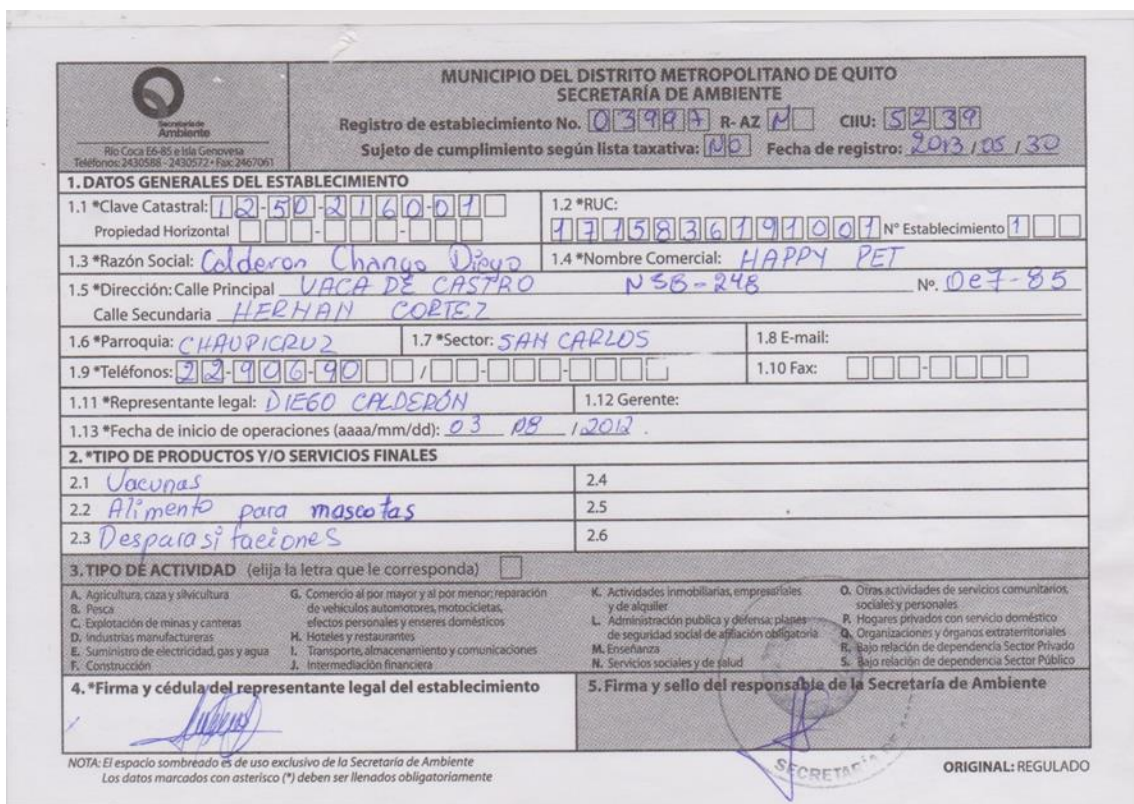 MUNICIPIO DEL DISTRITO METROPOLITANO DE QUITO
SECRETARÍA DE AMBIENTE
Secretaría de
Ambiente
Río Coca E6-85 e Isla Genovesa
Teléfonos: 2430588 - 2430572 • Fax: 2467061
Registro de establecimiento No. 03997 R- AZ N CIIU: 5239
Sujeto de cumplimiento según lista taxativa: NO Fecha de registro: 2013 / 05 / 30
1. DATOS GENERALES DEL ESTABLECIMIENTO
1.1 *Clave Catastral: 12-50-2160-01
Propiedad Horizontal
1.2 *RUC:
1715836191001 N° Establecimiento 1
1.3 *Razón Social: Calderon Chango Diego
1.4 *Nombre Comercial: HAPPY PET
1.5 *Dirección: Calle Principal VACA DE CASTRO N56-248 Nº. Oe7-85
Calle Secundaria HERNAN CORTEZ
1.6 *Parroquia: CHAUPICRUZ 1.7 *Sector: SAN CARLOS 1.8 E-mail:
1.9 *Teléfonos: 22-906-90 / 1.10 Fax:
1.11 *Representante legal: DIEGO CALDERÓN 1.12 Gerente:
1.13 *Fecha de inicio de operaciones (aaaa/mm/dd): 03 08 / 2012 .
2. *TIPO DE PRODUCTOS Y/O SERVICIOS FINALES
2.1 Vacunas 2.4
2.2 Alimento para mascotas 2.5
2.3 Desparasitaciones 2.6
3. TIPO DE ACTIVIDAD (elija la letra que le corresponda)
A. Agricultura, caza y silvicultura
B. Pesca
C. Explotación de minas y canteras
D. Industrias manufactureras
E. Suministro de electricidad, gas y agua
F. Construcción
G. Comercio al por mayor y al por menor; reparación
de vehículos automotores, motocicletas,
efectos personales y enseres domésticos
H. Hoteles y restaurantes
I. Transporte, almacenamiento y comunicaciones
J. Intermediación financiera
K. Actividades inmobiliarias, empresariales
y de alquiler
L. Administración publica y defensa; planes
de seguridad social de afiliación obligatoria
M. Enseñanza
N. Servicios sociales y de salud
O. Otras actividades de servicios comunitarios,
sociales y personales
P. Hogares privados con servicio doméstico
Q. Organizaciones y órganos extraterritoriales
R. Bajo relación de dependencia Sector Privado
S. Bajo relación de dependencia Sector Público
4. *Firma y cédula del representante legal del establecimiento
5. Firma y sello del responsable de la Secretaría de Ambiente
NOTA: El espacio sombreado es de uso exclusivo de la Secretaría de Ambiente
Los datos marcados con asterisco (*) deben ser llenados obligatoriamente
ORIGINAL: REGULADO